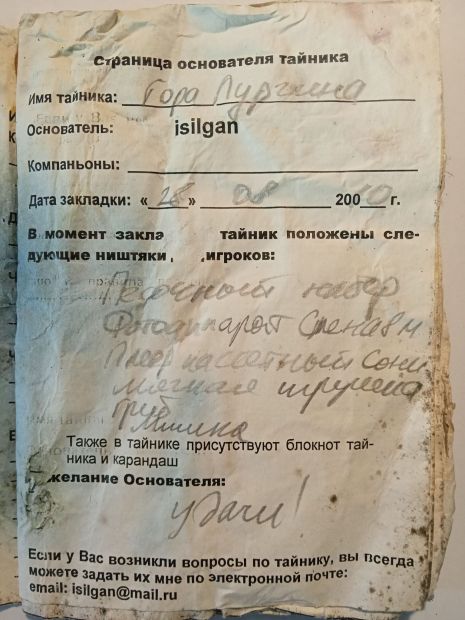 Страница основателя тайника
Имя тайника: Гора Пургина
Основатель: isilgan
Компаньоны:
Дата закладки: «28» 200 0 г.
В момент закла тайник положены сле-
дующие ништяки , игроков:
набор
Фотоаппарат
Плеер кассетный Сони
мягкая игрушка
Машина
Также в тайнике присутствуют блокнот тай-
ника и карандаш
желание Основателя:
удачи!
Если у Вас возникли вопросы по тайнику, вы всегда
можете задать их мне по электронной почте:
email: isilgan@mail.ru